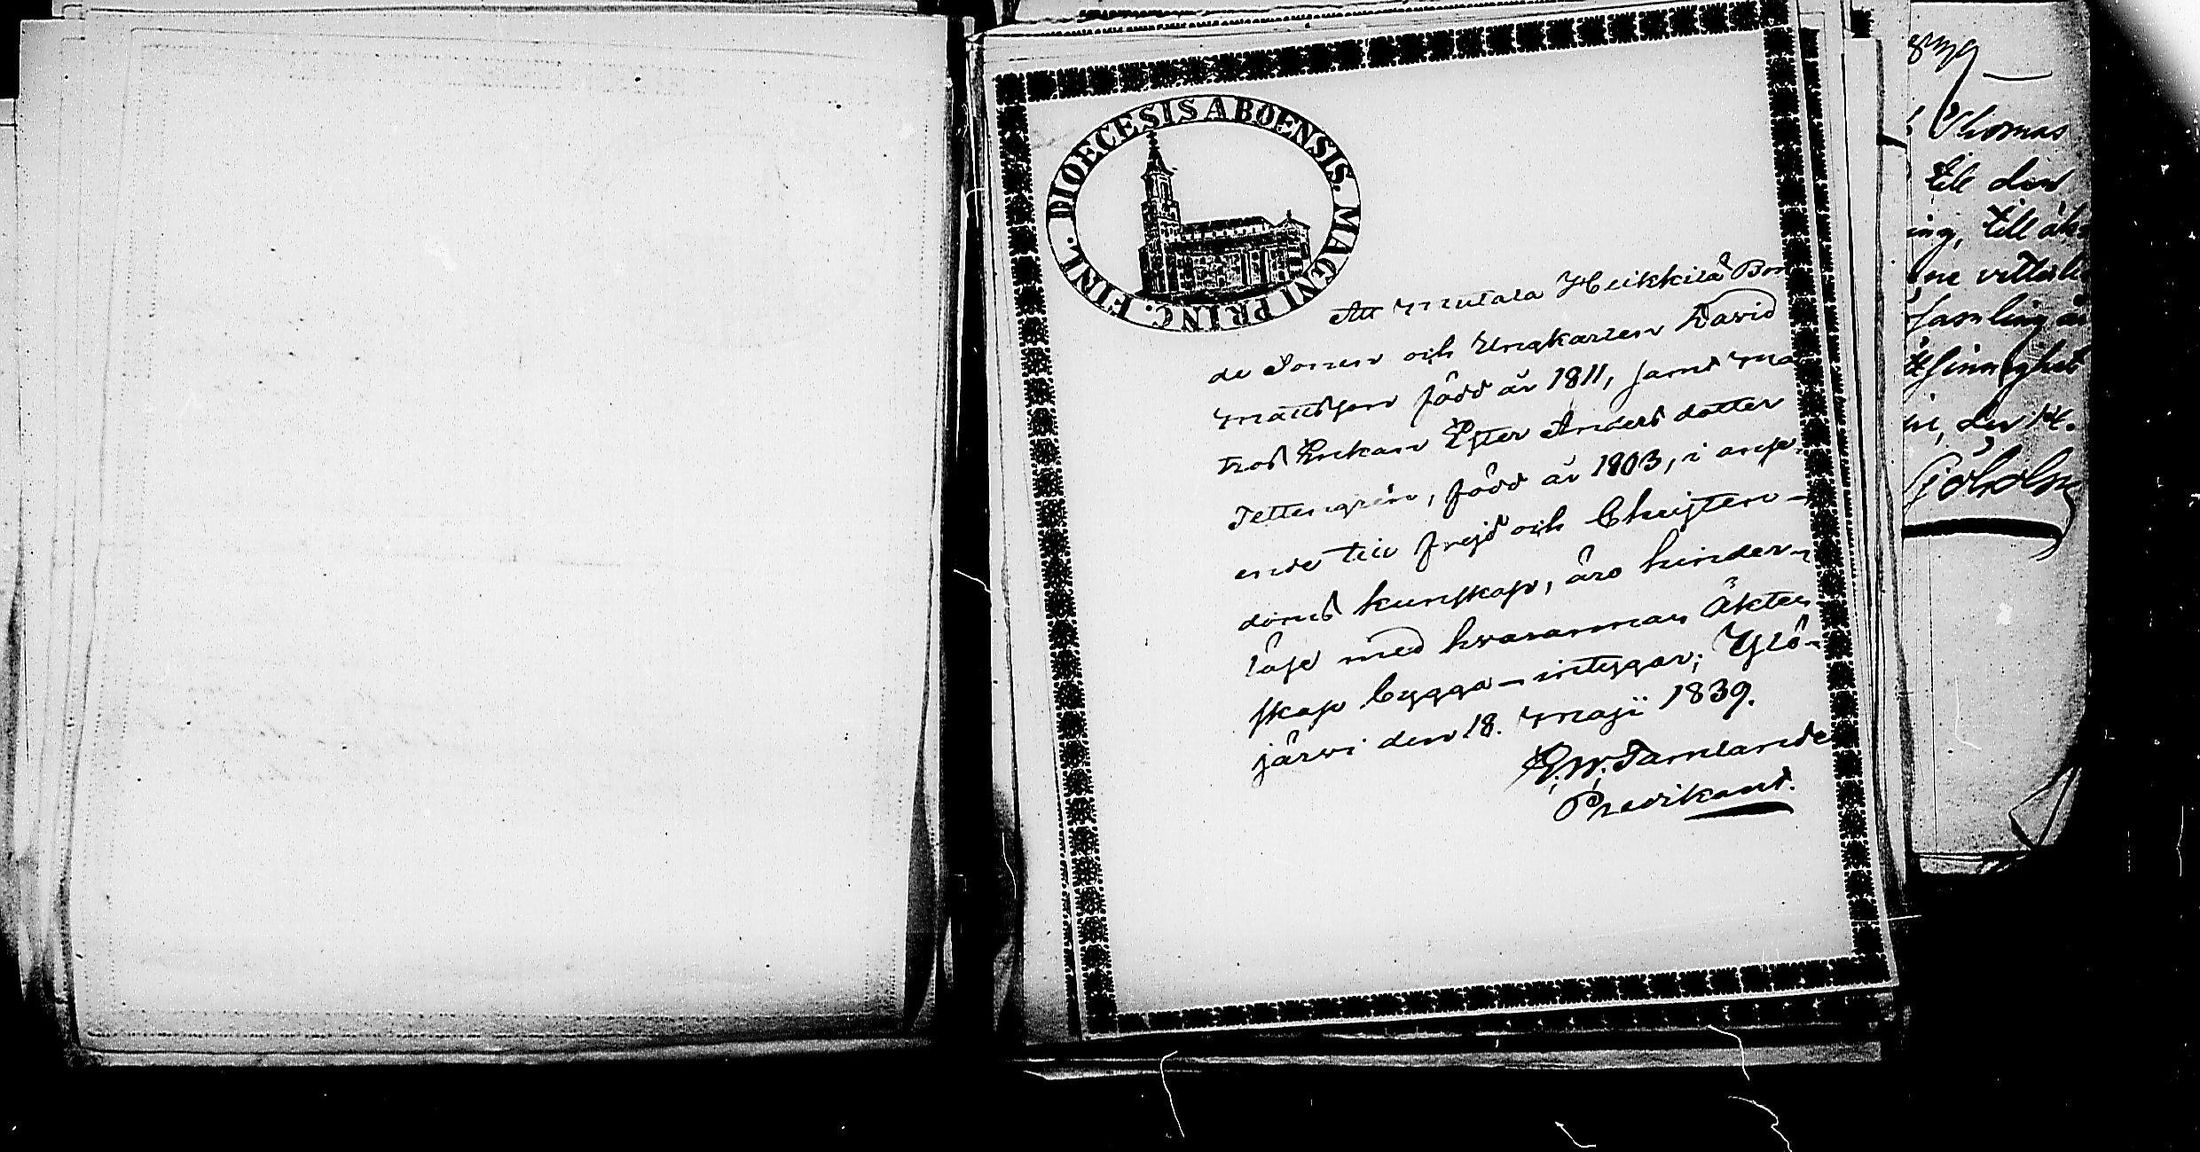 DIOECESIS ABOENSIS. MAGNI PRINC. FINL.
Att Mutala Heikkilä Bon
de Sonen och Ungkarlen David
Mattsson född år 1811, samt Ma
tros Enkan Ester Anders dotter
Tettengrén, född år 1803, i anse-
ende till frejd och Christen-
doms kunskap, äro hinder-
löse med hvarannan Äkten
skap bygga – intygar; Ylö-
järvi den 18. Maji 1839.
G. W. Tamlander
Predikant.
Thomas
till den
ing, till äk
ne vitterli
samling
den 14.